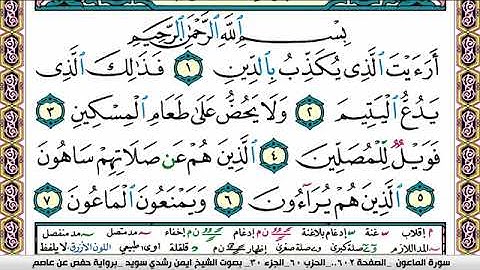 بِسْمِ ٱللَّهِ ٱلرَّحْمَٰنِ ٱلرَّحِيمِ
أَرَءَيْتَ ٱلَّذِى يُكَذِّبُ بِٱلدِّينِ ١ فَذَٰلِكَ ٱلَّذِى
يَدُعُّ ٱلْيَتِيمَ ٢ وَلَا يَحُضُّ عَلَىٰ طَعَامِ ٱلْمِسْكِينِ ٣
فَوَيْلٌ لِّلْمُصَلِّينَ ٤ ٱلَّذِينَ هُمْ عَن صَلَاتِهِمْ سَاهُونَ
٥ ٱلَّذِينَ هُمْ يُرَآءُونَ ٦ وَيَمْنَعُونَ ٱلْمَاعُونَ ٧
م إقلاب غنة إدغام بلاغنة ن م إدغام ن م إخفاء مد متصل مد منفصل
المد اللازم صلة كبرى صلة صغرى إظهار ن م قلقلة اوى طبيعي اللون الأزرق لا يلفظ
سورة الماعون _ الصفحة ٦٠٢.. الحزب ٦٠_ الجزء ٣٠_ بصوت الشيخ ايمن رشدي سويد _برواية حفص عن عاصم